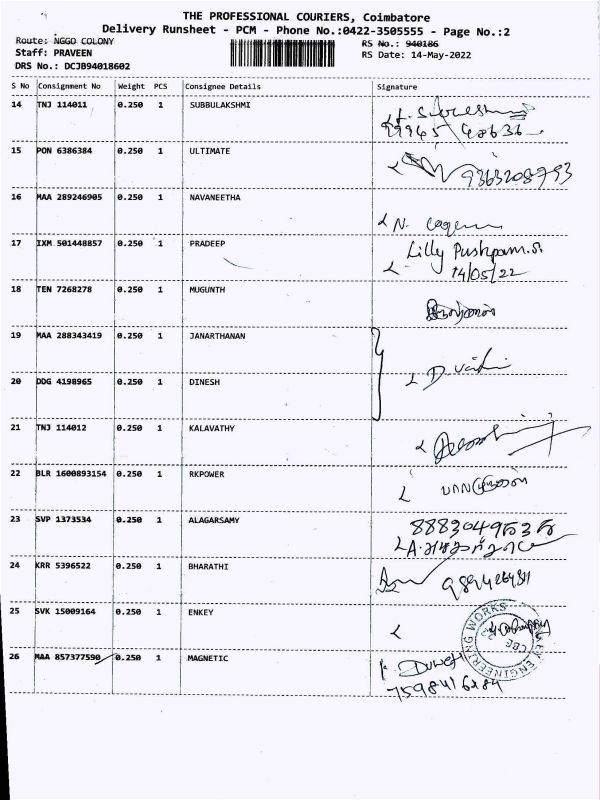 THE PROFESSIONAL COURIERS, Coimbatore
Delivery Runsheet - PCM - Phone No.:0422-3505555 - Page No.:2
Route: NGGO COLONY
RS No.: 940186
Staff: PRAVEEN
RS Date: 14-May-2022
DRS No.: DCJB94018602
S No Consignment No Weight PCS Consignee Details Signature
14 TNJ 114011 0.250 1 SUBBULAKSHMI
15 PON 6386384 0.250 1 ULTIMATE 9363208793
16 MAA 289246905 0.250 1 NAVANEETHA N.
17 IXM 501448857 0.250 1 PRADEEP Lilly Pushpam.S.
14/05/22
18 TEN 7268278 0.250 1 MUGUNTH
19 MAA 288343419 0.250 1 JANARTHANAN
20 DDG 4198965 0.250 1 DINESH D.
21 TNJ 114012 0.250 1 KALAVATHY
22 BLR 1600893154 0.250 1 RKPOWER
23 SVP 1373534 0.250 1 ALAGARSAMY
24 KRR 5396522 0.250 1 BHARATHI
25 SVK 15009164 0.250 1 ENKEY
ENGINEERING WORKS
CBE
26 MAA 857377590 0.250 1 MAGNETIC